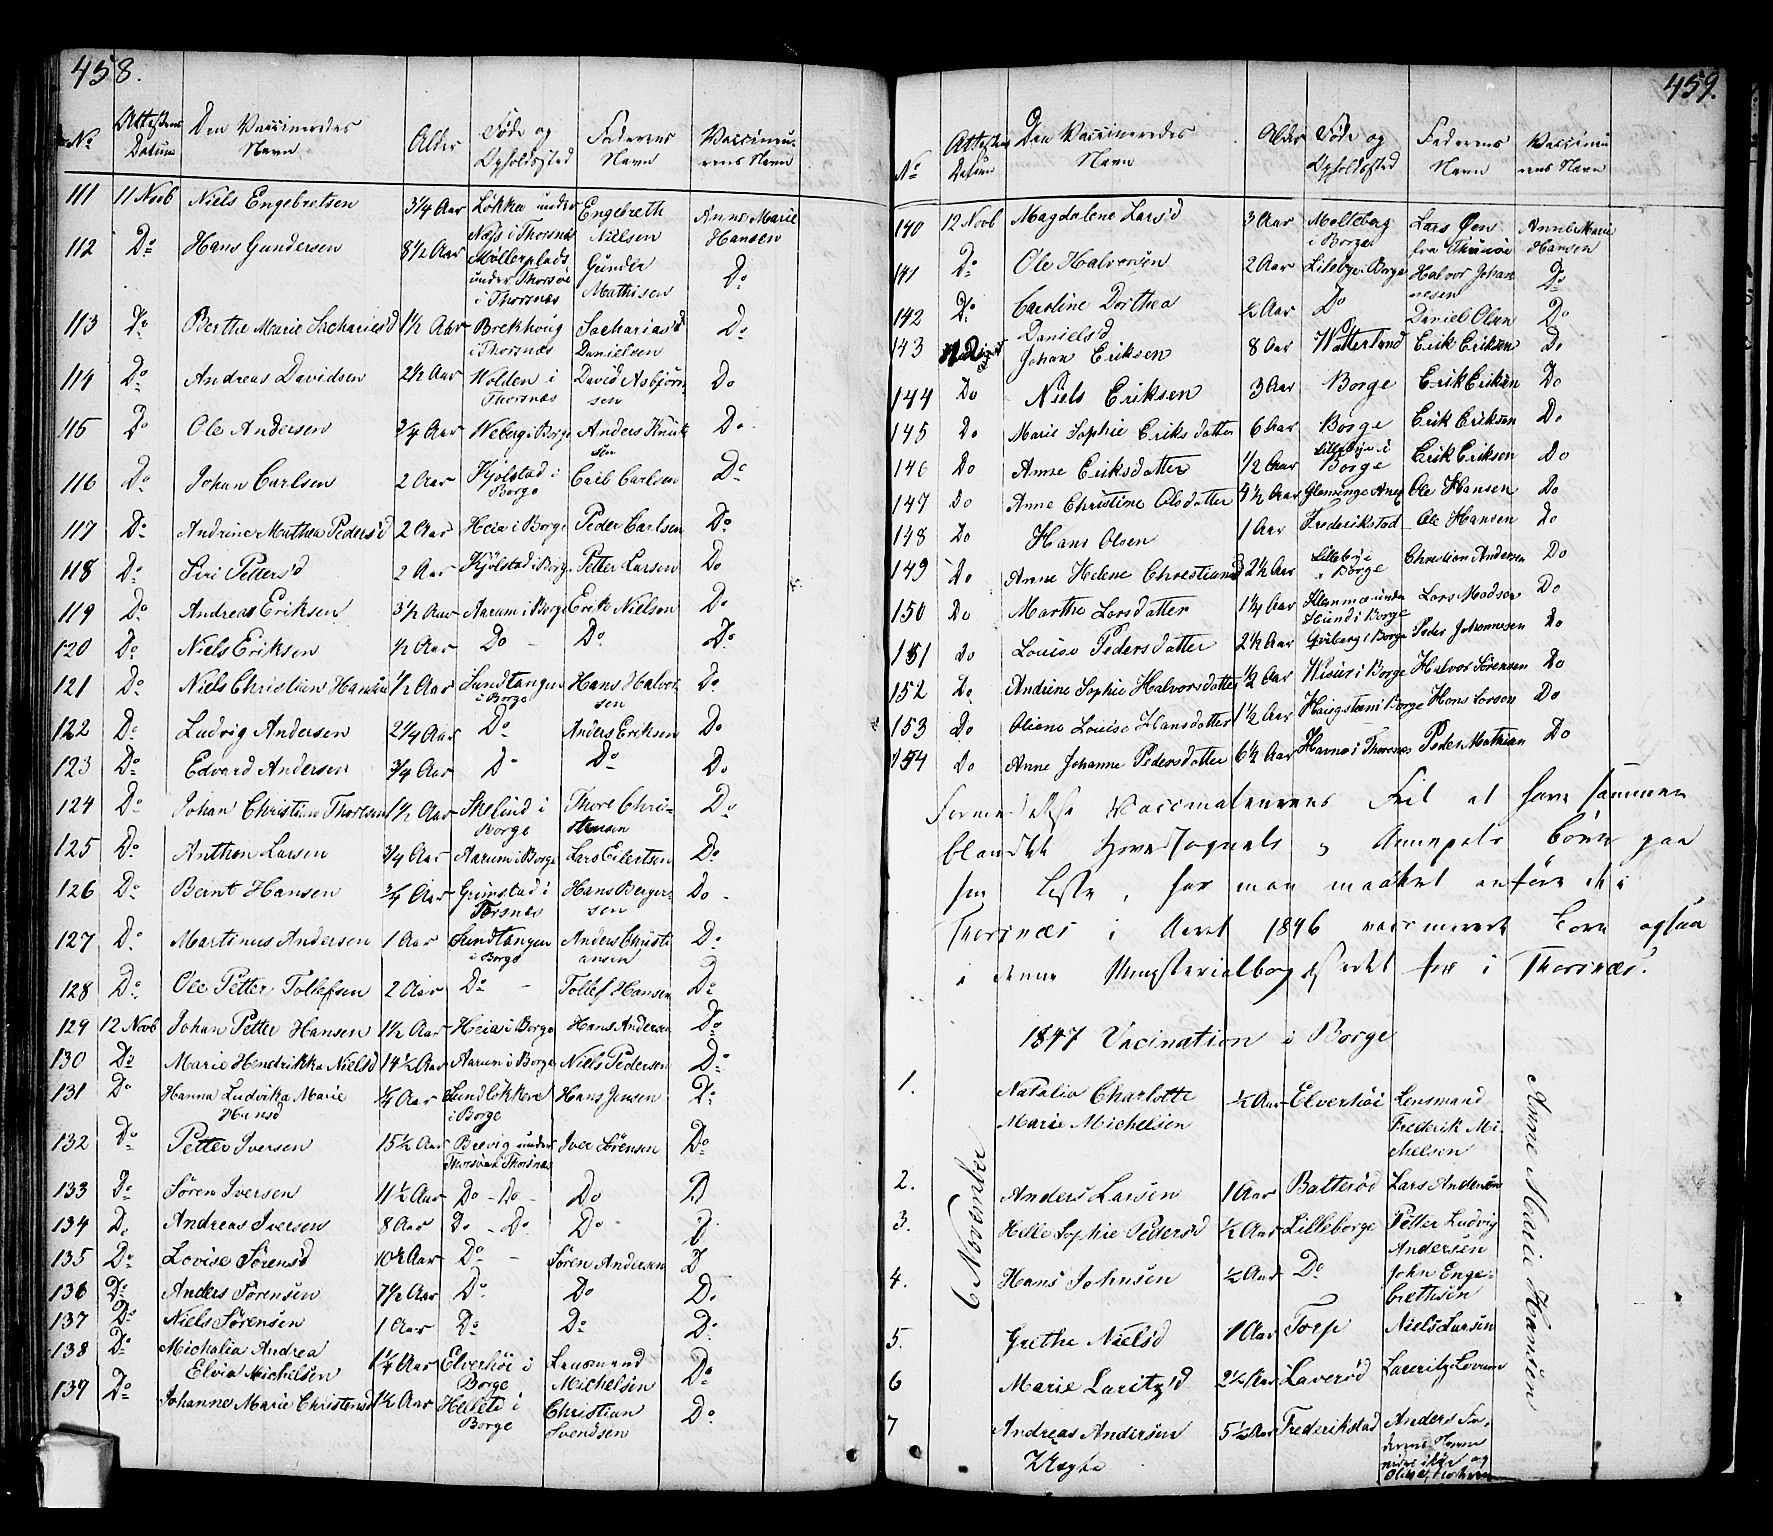 458.
No Attestens Datum Den Vaccineredes Navn Alder Føde og Opholdssted Faderens Navn Vaccineurens Navn
111 11 Novb Niels Engebretsen 3¼ Aar Løkka under Næs i Thorsnæs Engebreth Nielsen Anne Marie Hansen
112 Do Hans Gundersen 8½ Aar Møllerplads under Thorsøe i Thorsnæs Gunder Mathisen Do
113 Do Berthe Marie Sachariesd 1½ Aar Brekhoug i Thorsnæs Sacharias Danielsen Do
114 Do Andreas Davidsen 2½ Aar Wolden i Thorsnæs David Asbjørnsen Do
115 Do Ole Andersen ¾ Aar Weberg i Borge Anders Knutsen Do
116 Do Johan Carlsen 2 Aar Kjølstad i Borge Carl Carlsen Do
117 Do Andrine Mathea Pedersd 2 Aar Heia i Borge Peder Carlsen Do
118 Do Siri Pettersd 2 Aar Kjølstad i Borg Petter Larsen Do
119 Do Andreas Eriksen 3½ Aar Aarum i Borge Erik Nielsen Do
120 Do Niels Eriksen ½ Aar Do Do Do
121 Do Niels Christian Hansen ½ Aar Sundtangen i Borge Hans Halvorsen Do
122 Do Ludvig Andersen 2¼ Aar Do Anders Eriksen Do
123 Do Edvard Andersen ¾ Aar Do Do Do
124 Do Johan Christian Thoresen 1½ Aar Skelind i Borge Thore Christensen Do
125 Do Anthon Larsen ¾ Aar Aarum i Borge Lars Eilertsen Do
126 Do Bernt Hansen ¾ Aar Grimstad i Torsnæs Hans Bergersen Do
127 Do Martinus Andersen 1 Aar Sundtangen i Borge Anders Christiansen Do
128 Do Ole Petter Tollefsen 2 Aar Do Tollef Hansen Do
129 12 Novb Johan Petter Hansen 1½ Aar Heia i Borge Hans Andersen Do
130 Do Marie Hendrikka Nielsd 14½ Aar Aarum i Borge Niels Pedersen Do
131 Do Hanna Ludvika Marie Hansd ¼ Aar Sundløkken i Borge Hans Jensen Do
132 Do Petter Iversen 15½ Aar Brevig under Thorsnæs Iver Sørensen Do
133 Do Søren Iversen 11½ Aar Do - Do - Do D
134 Do Andreas Iversen 8 Aar Do - Do Do D
135 Do Lovise Sørensd 10½ Aar Do Søren Andersen D
136 Do Anders Sørensen 7½ Aar Do Do Do
137 Do Niels Sørensen 1 Aar Do Do Do
138 Do Michalia Andrea Elvia Michelsen 1¼ Aar Elverhøi i Borge Lensmand Michelsen Do
139 Do Johanne Marie Christensd 1½ Aar Borge Christian Svendsen Do
459.
No Attestens Datum Den Vaccineredes Navn Alder Føde og Opholdssted Faderens Navn Vaccineurens Navn
140 12 Novb Magdalene Larsd 3 Aar Molleberg i Borge Lars Øen fra Anne Marie Hansen
141 Do Ole Halvorsen 2 Aar Lilleby i Borge Halvor Johannesen Do
142 Do Caroline Dorthea Danielsd ½ Aar Do Daniel Olsen Do
143 Johan Eriksen 8 Aar Watterland Erik Eriksen Do
144 Do Niels Eriksen 3 Aar Borge Erik Eriksen Do
145 Do Marie Sophie Eriksdatter 6 Aar Borge Erik Eriksen Do
146 Do Anne Eriksdatter 1/2 Aar Lillebye i Borge Erik Eriksen Do
147 Do Anne Christine Olsdatter Aar Glemminge Ole Hansen Do
148 Do Hans Olsen 1 Aar Frederikstad Ole Hansen Do
149 Do Anne Helene Christiansd 2½ Aar Lillebye i Borge Christian Andersen Do
150 Do Marthe Larsdatter 1¼ Aar under Hund i Borge Lars Madsen Do
151 Do Louise Pedersdatter 2½ Aar i Borge Peder Johannesen Do
152 Do Andrine Sophie Halvorsdatter ½ Aar i Borge Halvor Sørensen Do
153 Do Oliane Louise Hansdatter 1½ Aar i Borge Hans Larsen Do
154 Do Anne Johanne Pedersdatter 6½ Aar Havnen i Thorsnæs Peder Mathisen Do
Formedelst Vaccinateurens Feil at have sammen
blandet Hovedsognets og Annexets Børn paa
sin Liste, har man maattet anføre de i
Thorsnæs i Aaret 1846 vaccinerede Børn ogsaa
i denne Ministerialbog istedet for i Thorsnæs.
1847 Vacination i Borge
6 November
Anne Marie Hansen
1. Natalia Charlotte Marie Michelsen ½ Aar Elverhøi Lensmand Frederik Michelsen
2. Anders Larsen 1 Aar Batterød Lars Andersen
3. Helle Sophie Pedersd ½ Aar Lilleborge Petter Ludvig Andersen
4. Hans Johnsen ½ Aar Do John Engebrethsen
5. Grethe Nielsd 1 Aar Torp Niels Larsen
6 Marie Laritzd 2½ Aar Laverød Lauritz
7 Andreas Andersen 5½ Aar Frederikstad Anders